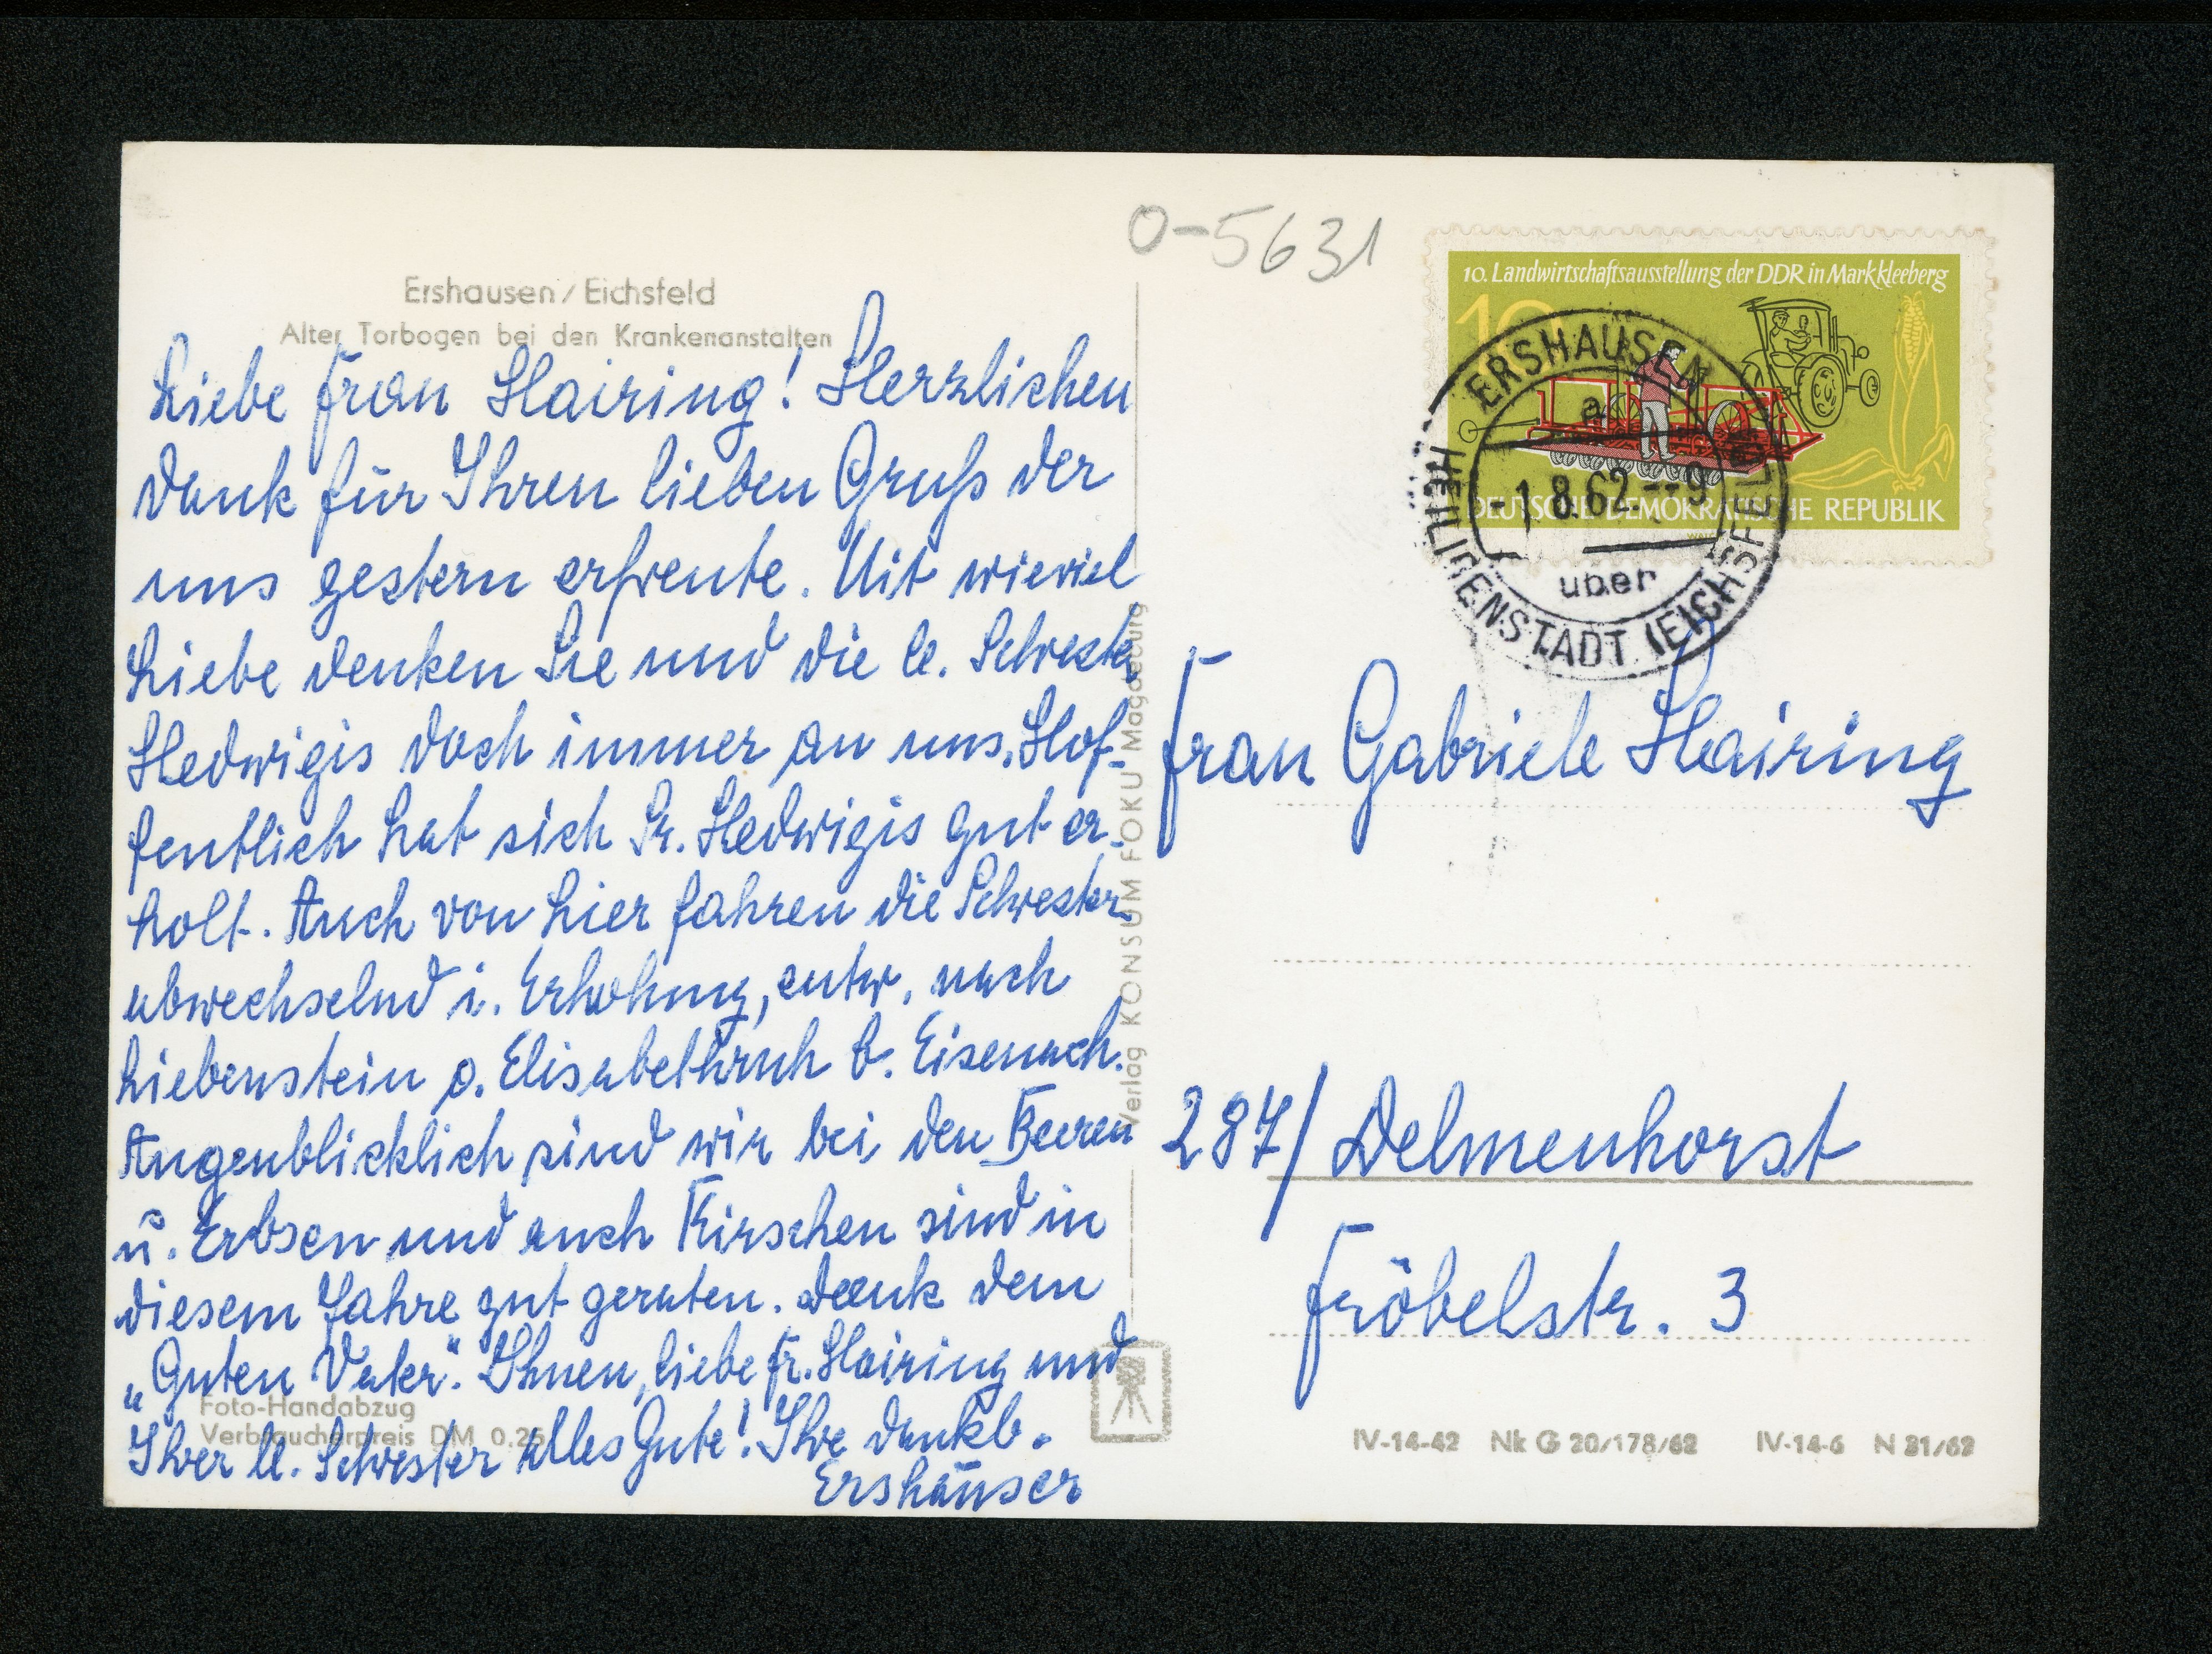 Ershausen / Eichsfeld
Alter Torbogen bei den Krankenanstalten
Liebe Frau Hairing! Herzlichen
Dank für Ihren lieben Gruß der
uns gestern erfreute. Mit wieviel
Liebe denken Sie und die lb. Schwester
Hedwigis doch immer an uns. Hof-
fentlich hat sich Sr. Hedwigis gut er-
holt. Auch von hier fahren die Schwestern
abwechselnd i. Erholung, entw. nach
Liebenstein o. Elisabethruh b. Eisenach.
Augenblicklich sind wir bei den Beeren
u. Erbsen und auch Kirschen sind in
diesem Jahre gut geraten. Dank dem
„Guten Vater". Ihnen, liebe Fr. Hairing und
Ihrer lb. Schwester alles Gute! Ihre dankb.
Ershäuser
Foto-Handabzug
Verbraucherpreis DM 0,25
Verlag KONSUM FOKU Magdeburg
0-5631
10. Landwirtschaftsausstellung der DDR in Markkleeberg
10
DEUTSCHE DEMOKRATISCHE REPUBLIK
ERSHAUSEN
a
-1.8.62.--9
über
HEILIGENSTADT (EICHSFELD)
Frau Gabriele Hairing
287/ Delmenhorst
Fröbelstr. 3
IV-14-42 Nk G 20/178/62 IV-14-6 N 81/62